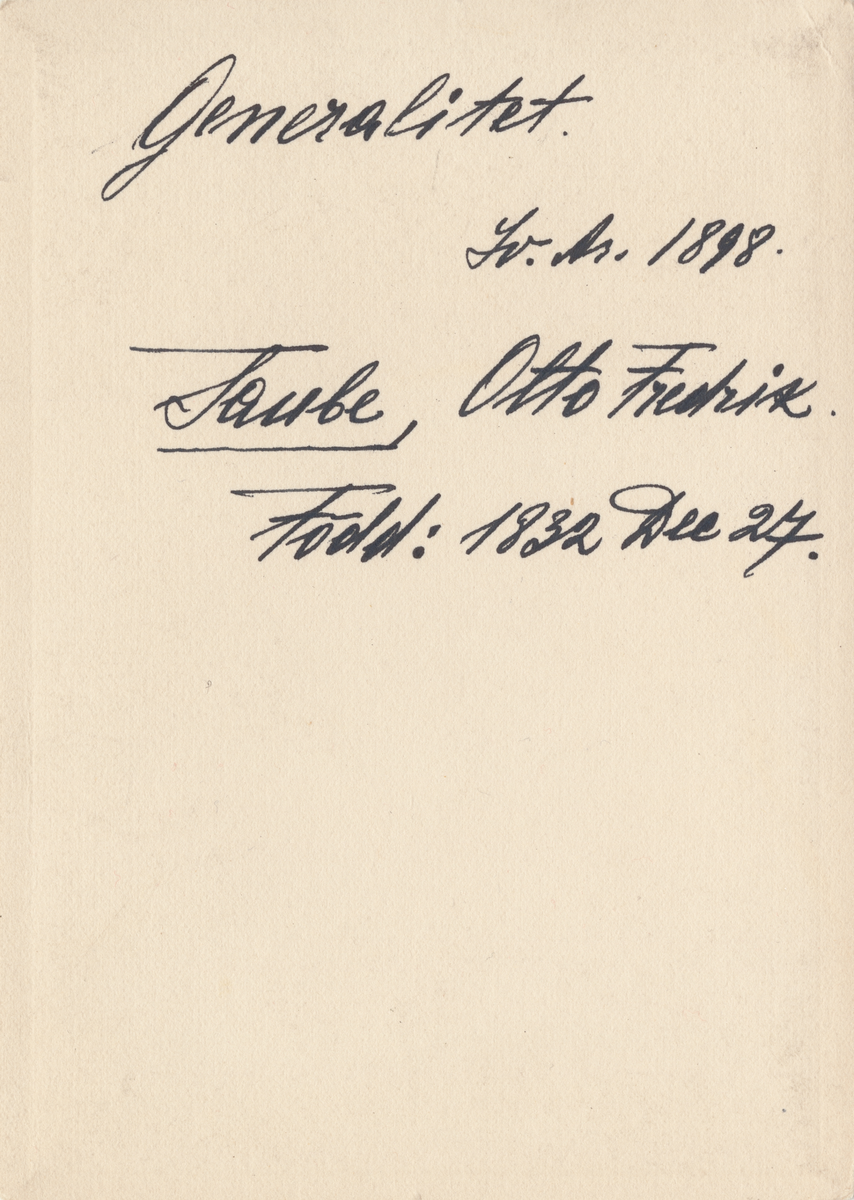 Generalitet.
Sv. Ar. 1898.
Taube, Otto Fredrik.
Född: 1832 Dec 27.